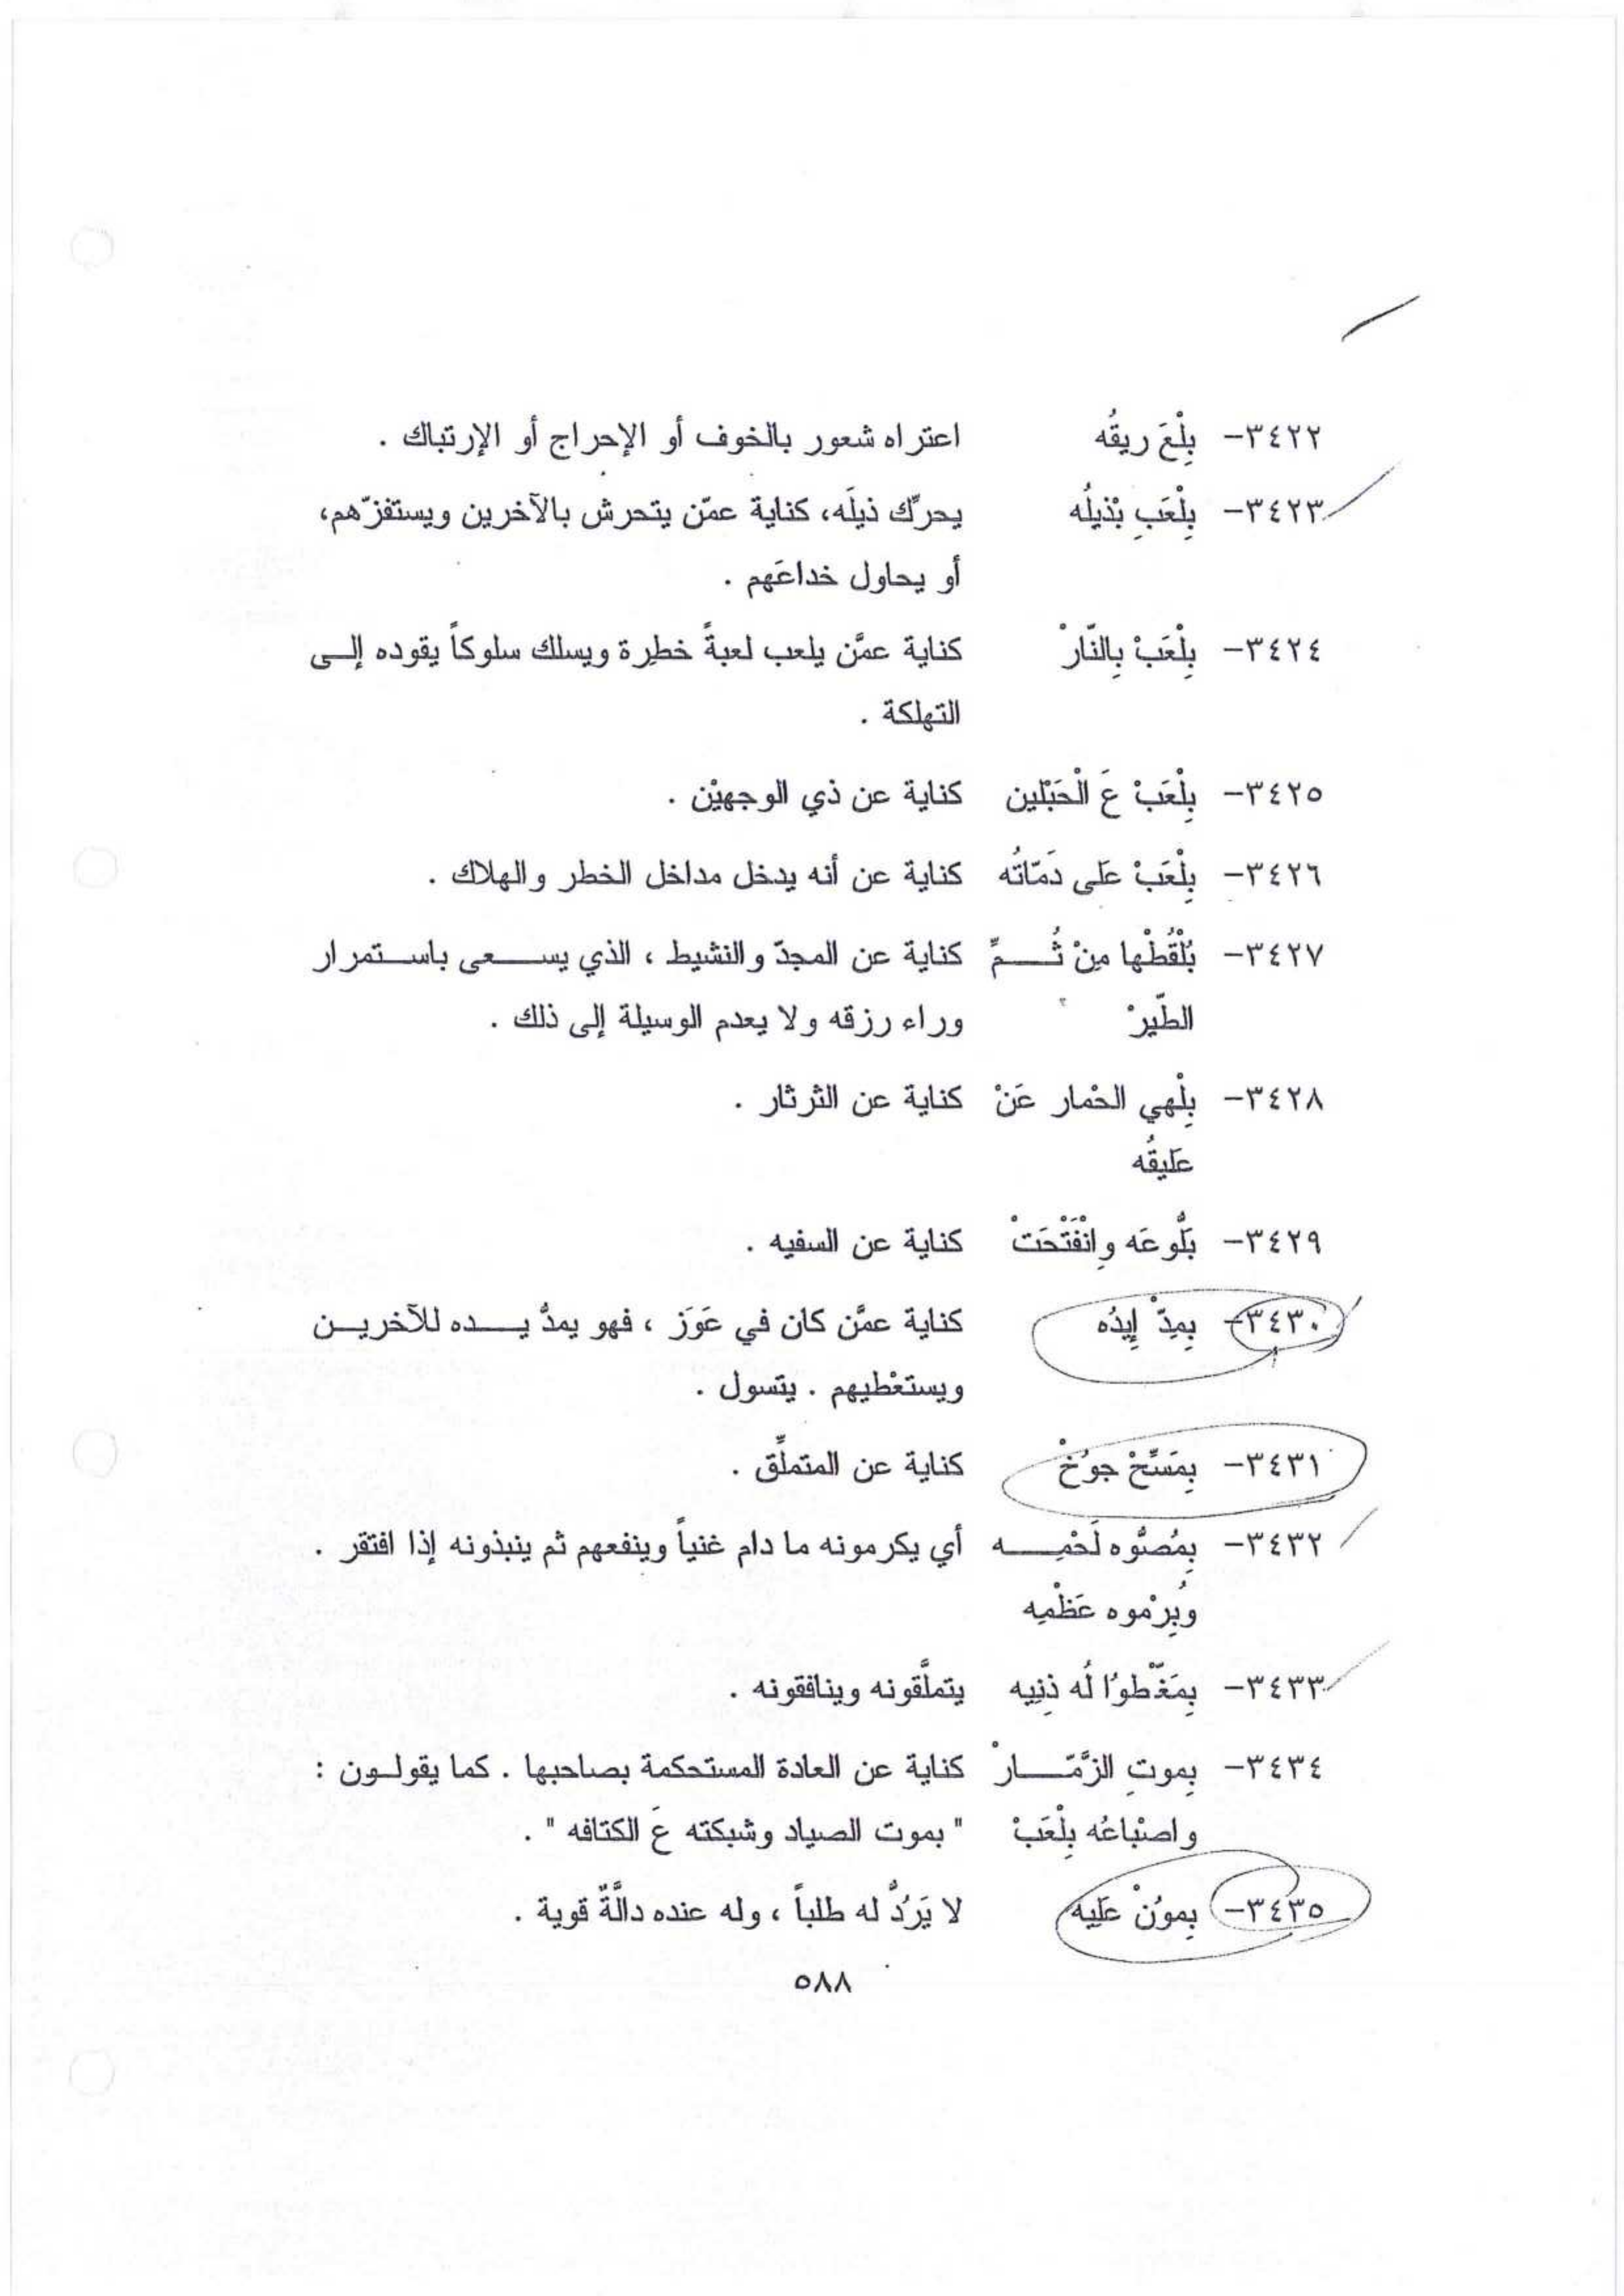 ٣٤٢٢- بِلْعَ ريقُه اعتراه شعور بالخوف أو الإحراج أو الإرتباك .
٣٤٢٣- بِلْعَبِ بْذيلُه يحرِّك ذيلَه، كناية عمّن يتحرش بالآخرين ويستفزّهم،
أو يحاول خداعَهم .
٣٤٢٤- بِلْعَبْ بِالنّارْ كناية عمَّن يلعب لعبةً خطِرة ويسلك سلوكاً يقوده إلى
التهلكة .
٣٤٢٥- بِلْعَبْ عَ الْحَبْلين كناية عن ذي الوجهيْن .
٣٤٢٦- بِلْعَبْ عَلى دَمّاتُه كناية عن أنه يدخل مداخل الخطر والهلاك .
٣٤٢٧- بُلْقُطْها مِنْ ثُمِّ كناية عن المجدّ والنشيط ، الذي يسعى باستمرار
الطّيرْ وراء رزقه ولا يعدم الوسيلة إلى ذلك .
٣٤٢٨- بِلْهي الحْمار عَنْ كناية عن الثرثار .
عَليقُه
٣٤٢٩- بَلّوعَه وِانْفَتْحَتْ كناية عن السفيه .
٣٤٣٠- بِمِدّْ إيدُه كناية عمَّن كان في عَوَز ، فهو يمدُّ يده للآخرين
ويستعْطيهم . يتسول .
٣٤٣١- بِمَسِّحْ جوُخْ كناية عن المتملِّق .
٣٤٣٢- بِمُصُّوه لَحْمِه أي يكرمونه ما دام غنياً وينفعهم ثم ينبذونه إذا افتقر .
وُبِرْموه عَظْمِه
٣٤٣٣- بِمَغّْطوُا لُه ذنِيه يتملَّقونه وينافقونه .
٣٤٣٤- بِموتِ الزَّمّارْ كناية عن العادة المستحكمة بصاحبها . كما يقولون :
واصْباعُه بِلْعَبْ " بموت الصياد وشبكته عَ الكتافه " .
٣٤٣٥- بِموُنْ عَليه لا يَرُدُّ له طلباً ، وله عنده دالَّةٌ قوية .
٥٨٨